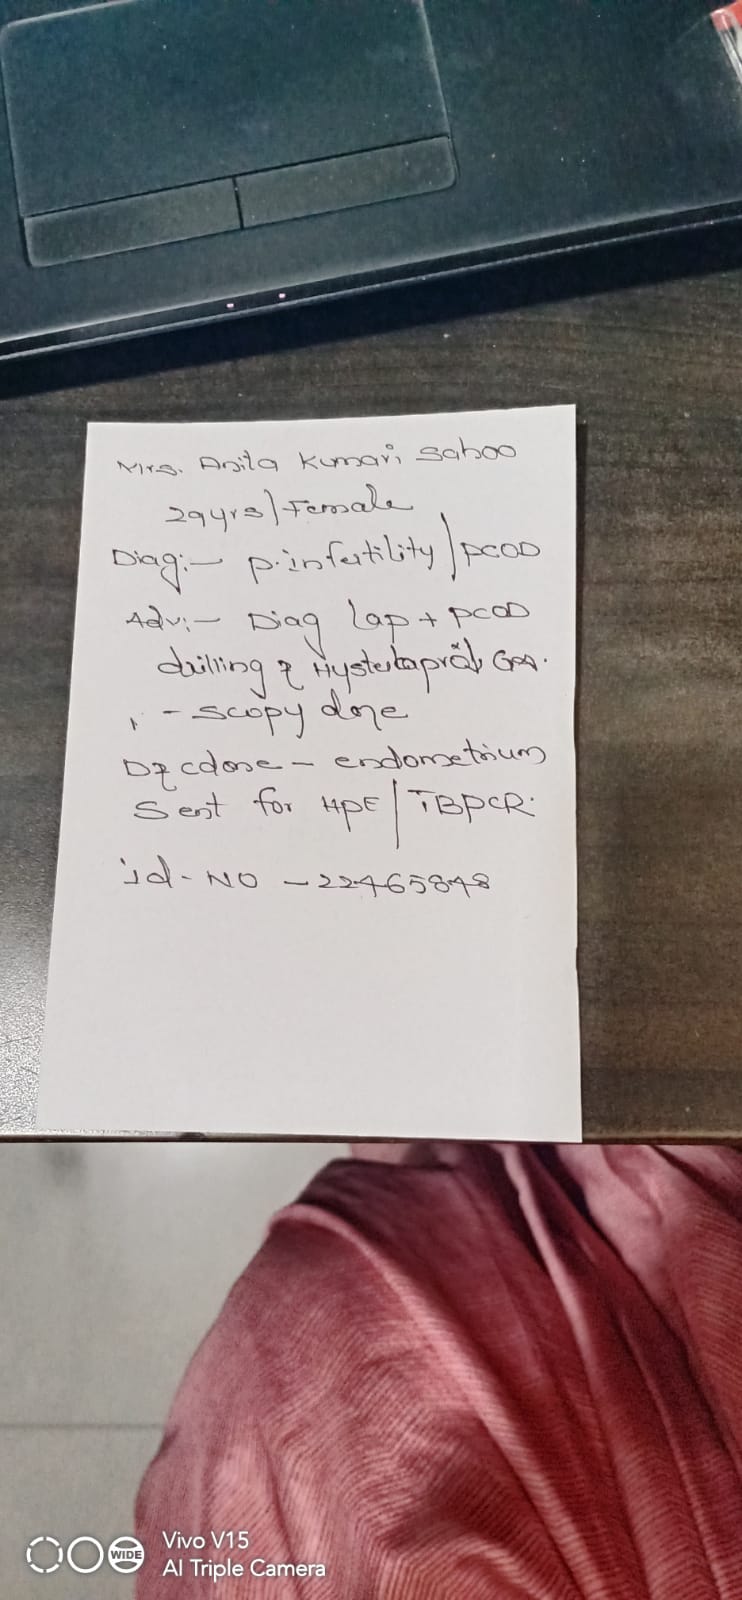 Mrs. Anita Kumari Sahoo
29yrs/Female
Diag:- p.infertility/PCOD
Adv:- Diag lap + PCOD
drilling &
- scopy done
done - endometrium
Sent for HPE/TBPCR.
id-NO -22465848
WIDE
Vivo V15
AI Triple Camera